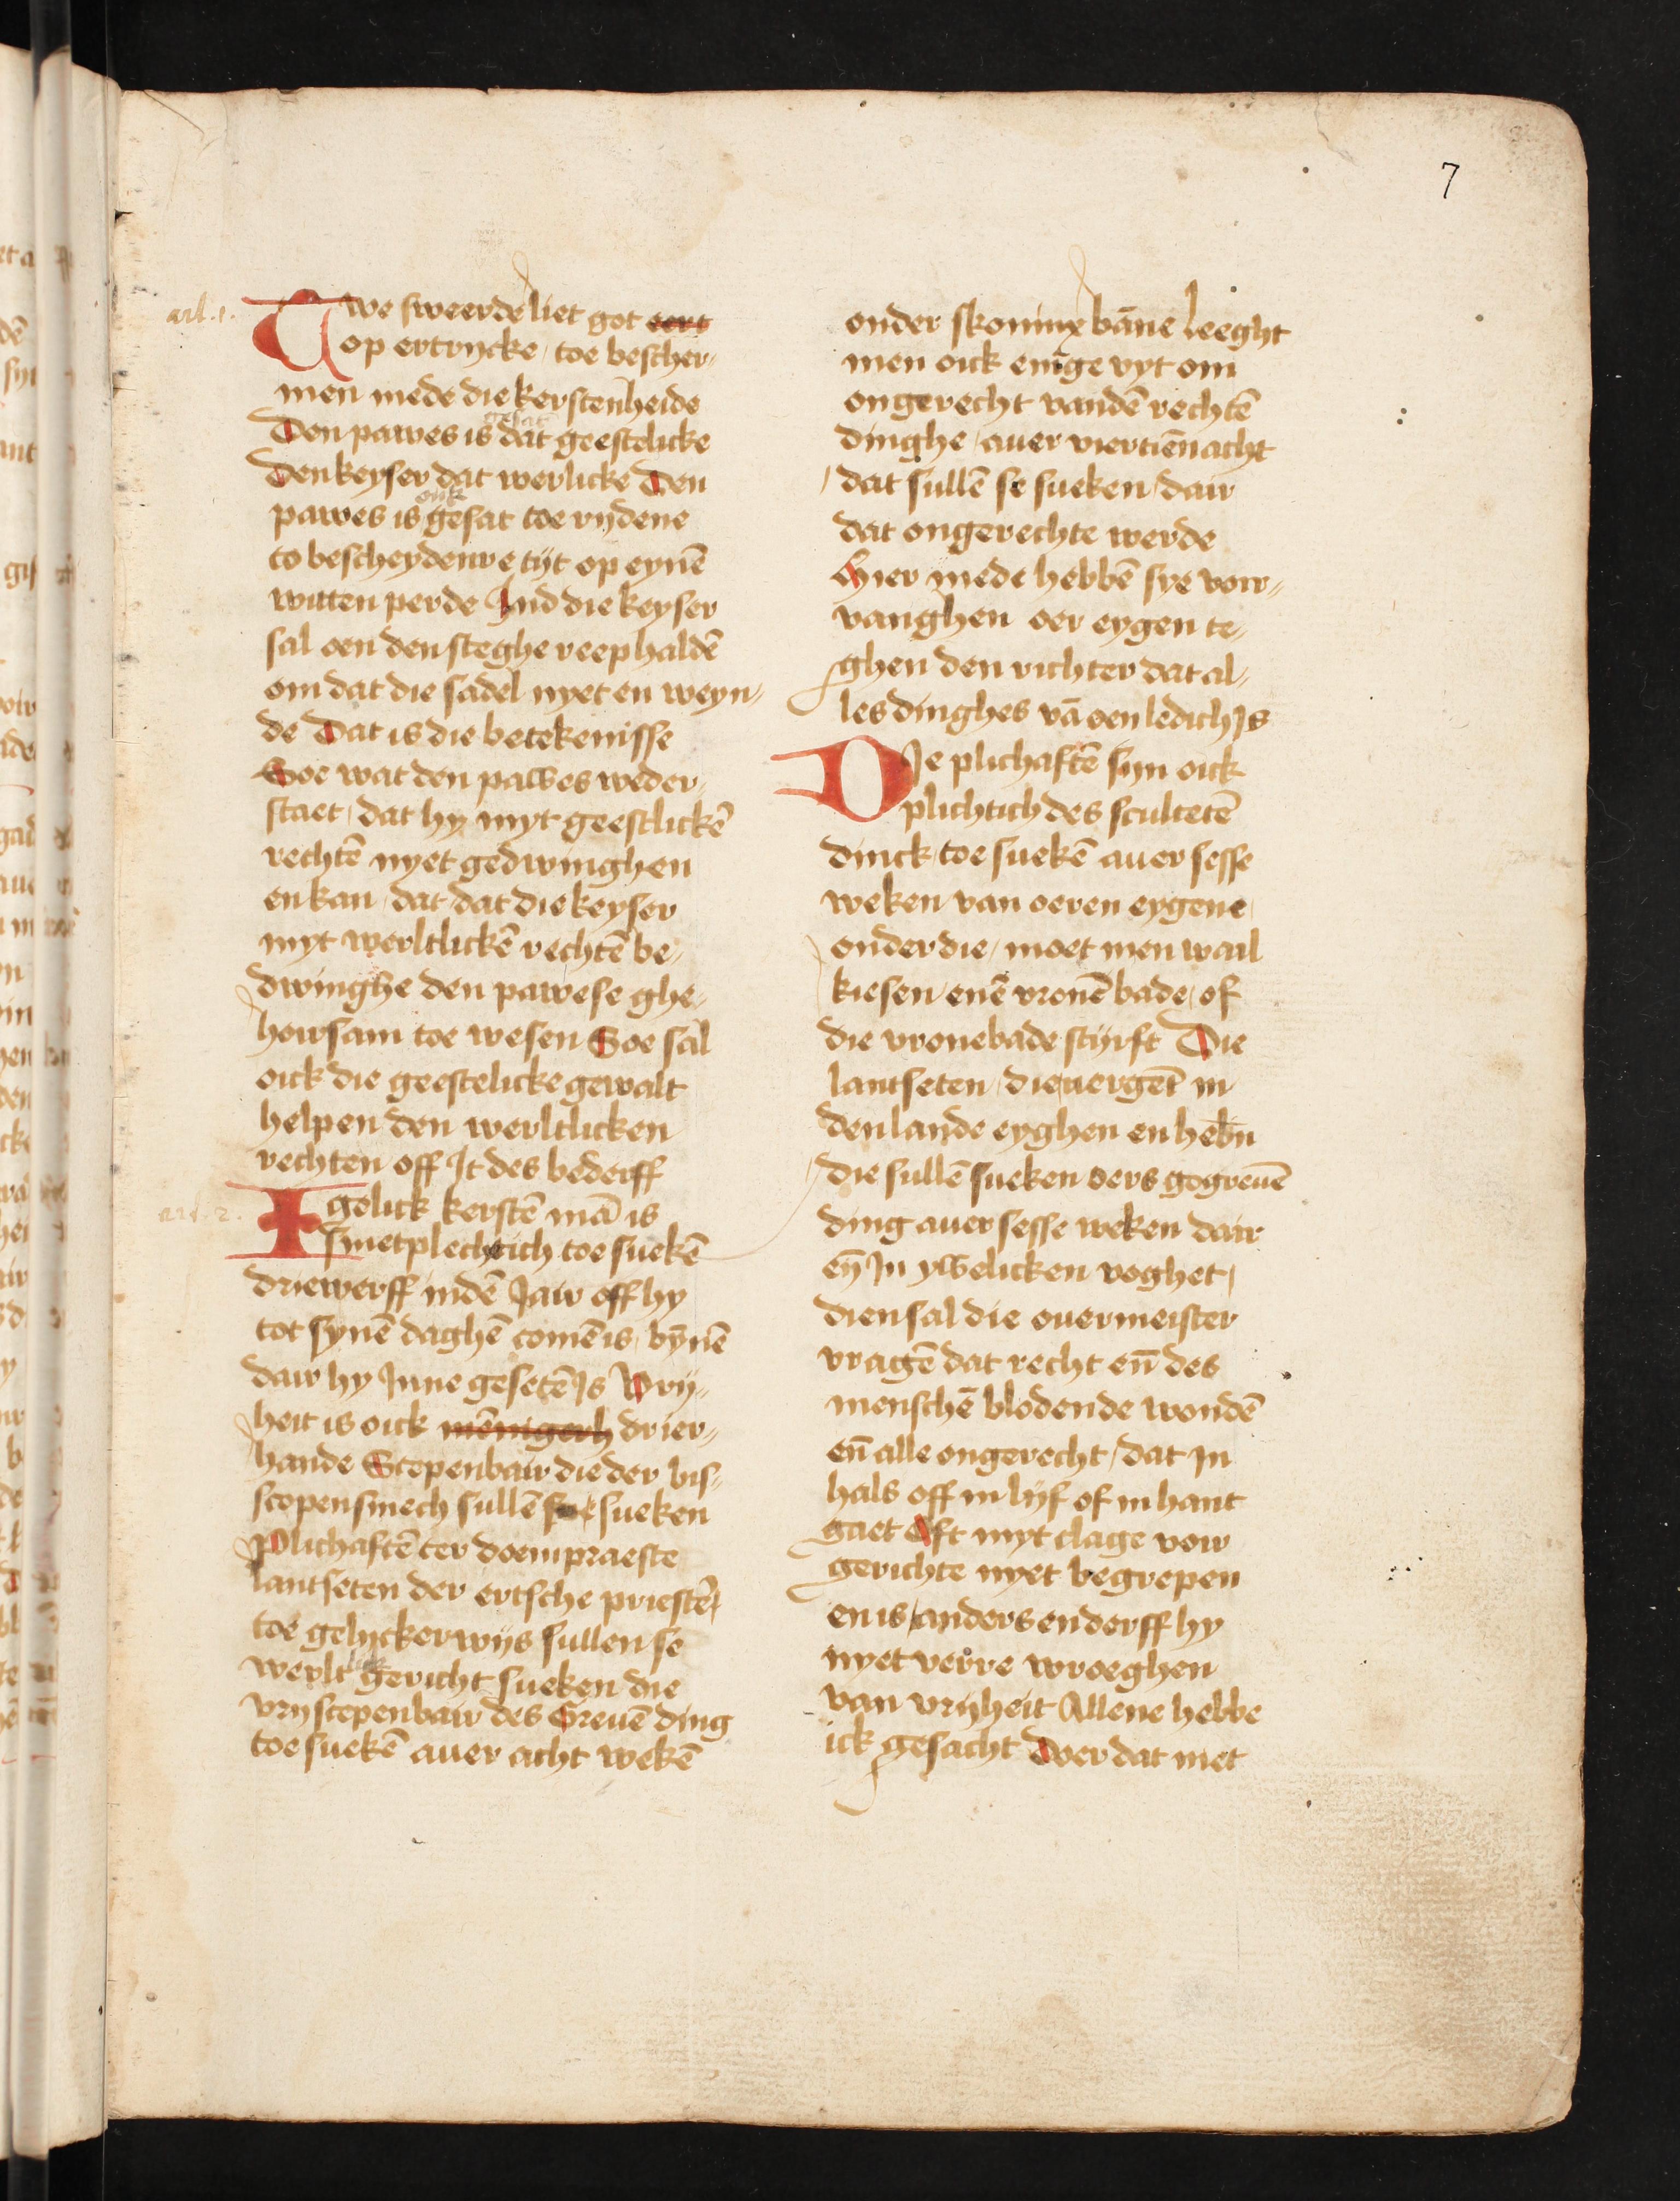 7
art. 1.
Twe sweerde liet got eert
op ertrycke / toe bescher⸗
men mede die kerstenheide
gesat
Den pawes is dat geestelicke
Den keyser dat werlicke Den
oick
pawes is gesat toe rydene
to bescheydenre tijt op eynē
witten perde Ind die keyser
sal oen den steghe reep haldē
om dat die sadel nyet en weyn⸗
de Dat is die betekenisse
Soe wat den pawes weder⸗
staet / dat hy myt geestlickē
rechtē nyet gedwinghen
en kan / dat dat die keyser
myt werltlickē rechtē be⸗
dwinghe den pawese ghe⸗
horsam toe wesen Soe sal
oick die geestelicke gewalt
helpen den werltlicken
rechten off It des bederff
art. 2.
Igelick kerstē mā is
sinetplechtich toe suekē
driewerff indē Jair off hy
tot synē daghē comē is / bȳnē
dair hy Inne gesetē Is Vrij⸗
heit is oick mēnigerh drier⸗
hande Scepenbair die der bis⸗
scopen sinech sullē se sueken
Plichaftē ter doempraeste
lantseten der ertsche priestē
toe gelyckerwijs sullen se
lick
werlt gericht sueken die
vry scepenbair des Greuē ding
toe suekē auer acht wekē
onder skoninx bāne leeght
men oick enīge vyt om
ongerecht vandē rechtē
dinghe / auer viertiēnacht
/ dat sullē se sueken / dair
dat ongerechte werde
Hier mede hebbē sye vor⸗
vanghen oer eygen te⸗
ghen den richter dat al⸗
les dinghes vā oen ledich Is
DIe plichaftē syn oick
plichtich des scultetē
dinck toe suekē auer sesse
weken van oeren eygene
onder die / moet men wail
kiesen enē vronē bade / of
die vronebade stijrft Die
lantseten / die nergēt in
den lande eyghen en hebn̄
die sullē sueken oers gogreuē
ding auer sesse weken dair
eñ In ywelicken voghet /
dien sal die ouermeister
vragē dat recht eñ des
menschē blodende wondē
eñ alle ongerecht / dat In
hals off in lijf of in hant
gaet Oft myt clage vor
gerichte nyet begrepen
en is / anders en derff hy
nyet verre wroeghen
van vrijheit Allene hebbe
ick gesacht Doer dat met